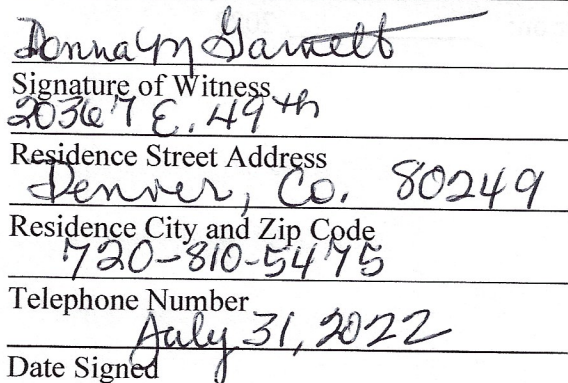 Donna M Garnett
Signature of Witness
20367 E. 49th
Residence Street Address
Denver, Co. 80249
Residence City and Zip Code
720-810-5475
Telephone Number
July 31, 2022
Date Signed